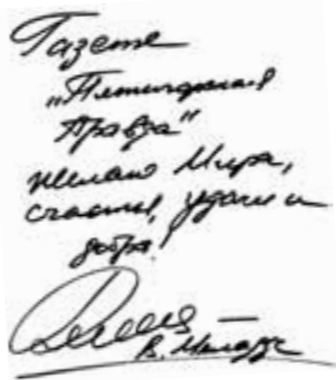 Газете
„Пятигорская
Правда"
желаю Мира,
счастья, удачи и
добра!
В. Меладзе